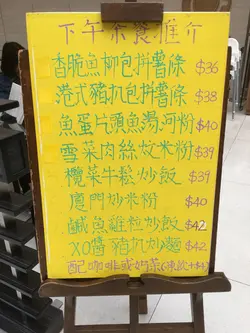 下午茶餐推介
香脆魚柳包拼薯條 $36
港式豬扒包拼薯條 $38
魚蛋片頭魚湯河粉 $40
雪菜肉絲炆米粉 $39
欖菜牛鬆炒飯 $39
廈門炒米粉 $40
鹹魚雞粒炒飯 $42
XO醬豬扒炒麵 $42
配咖啡或奶茶(凍飲+$4)